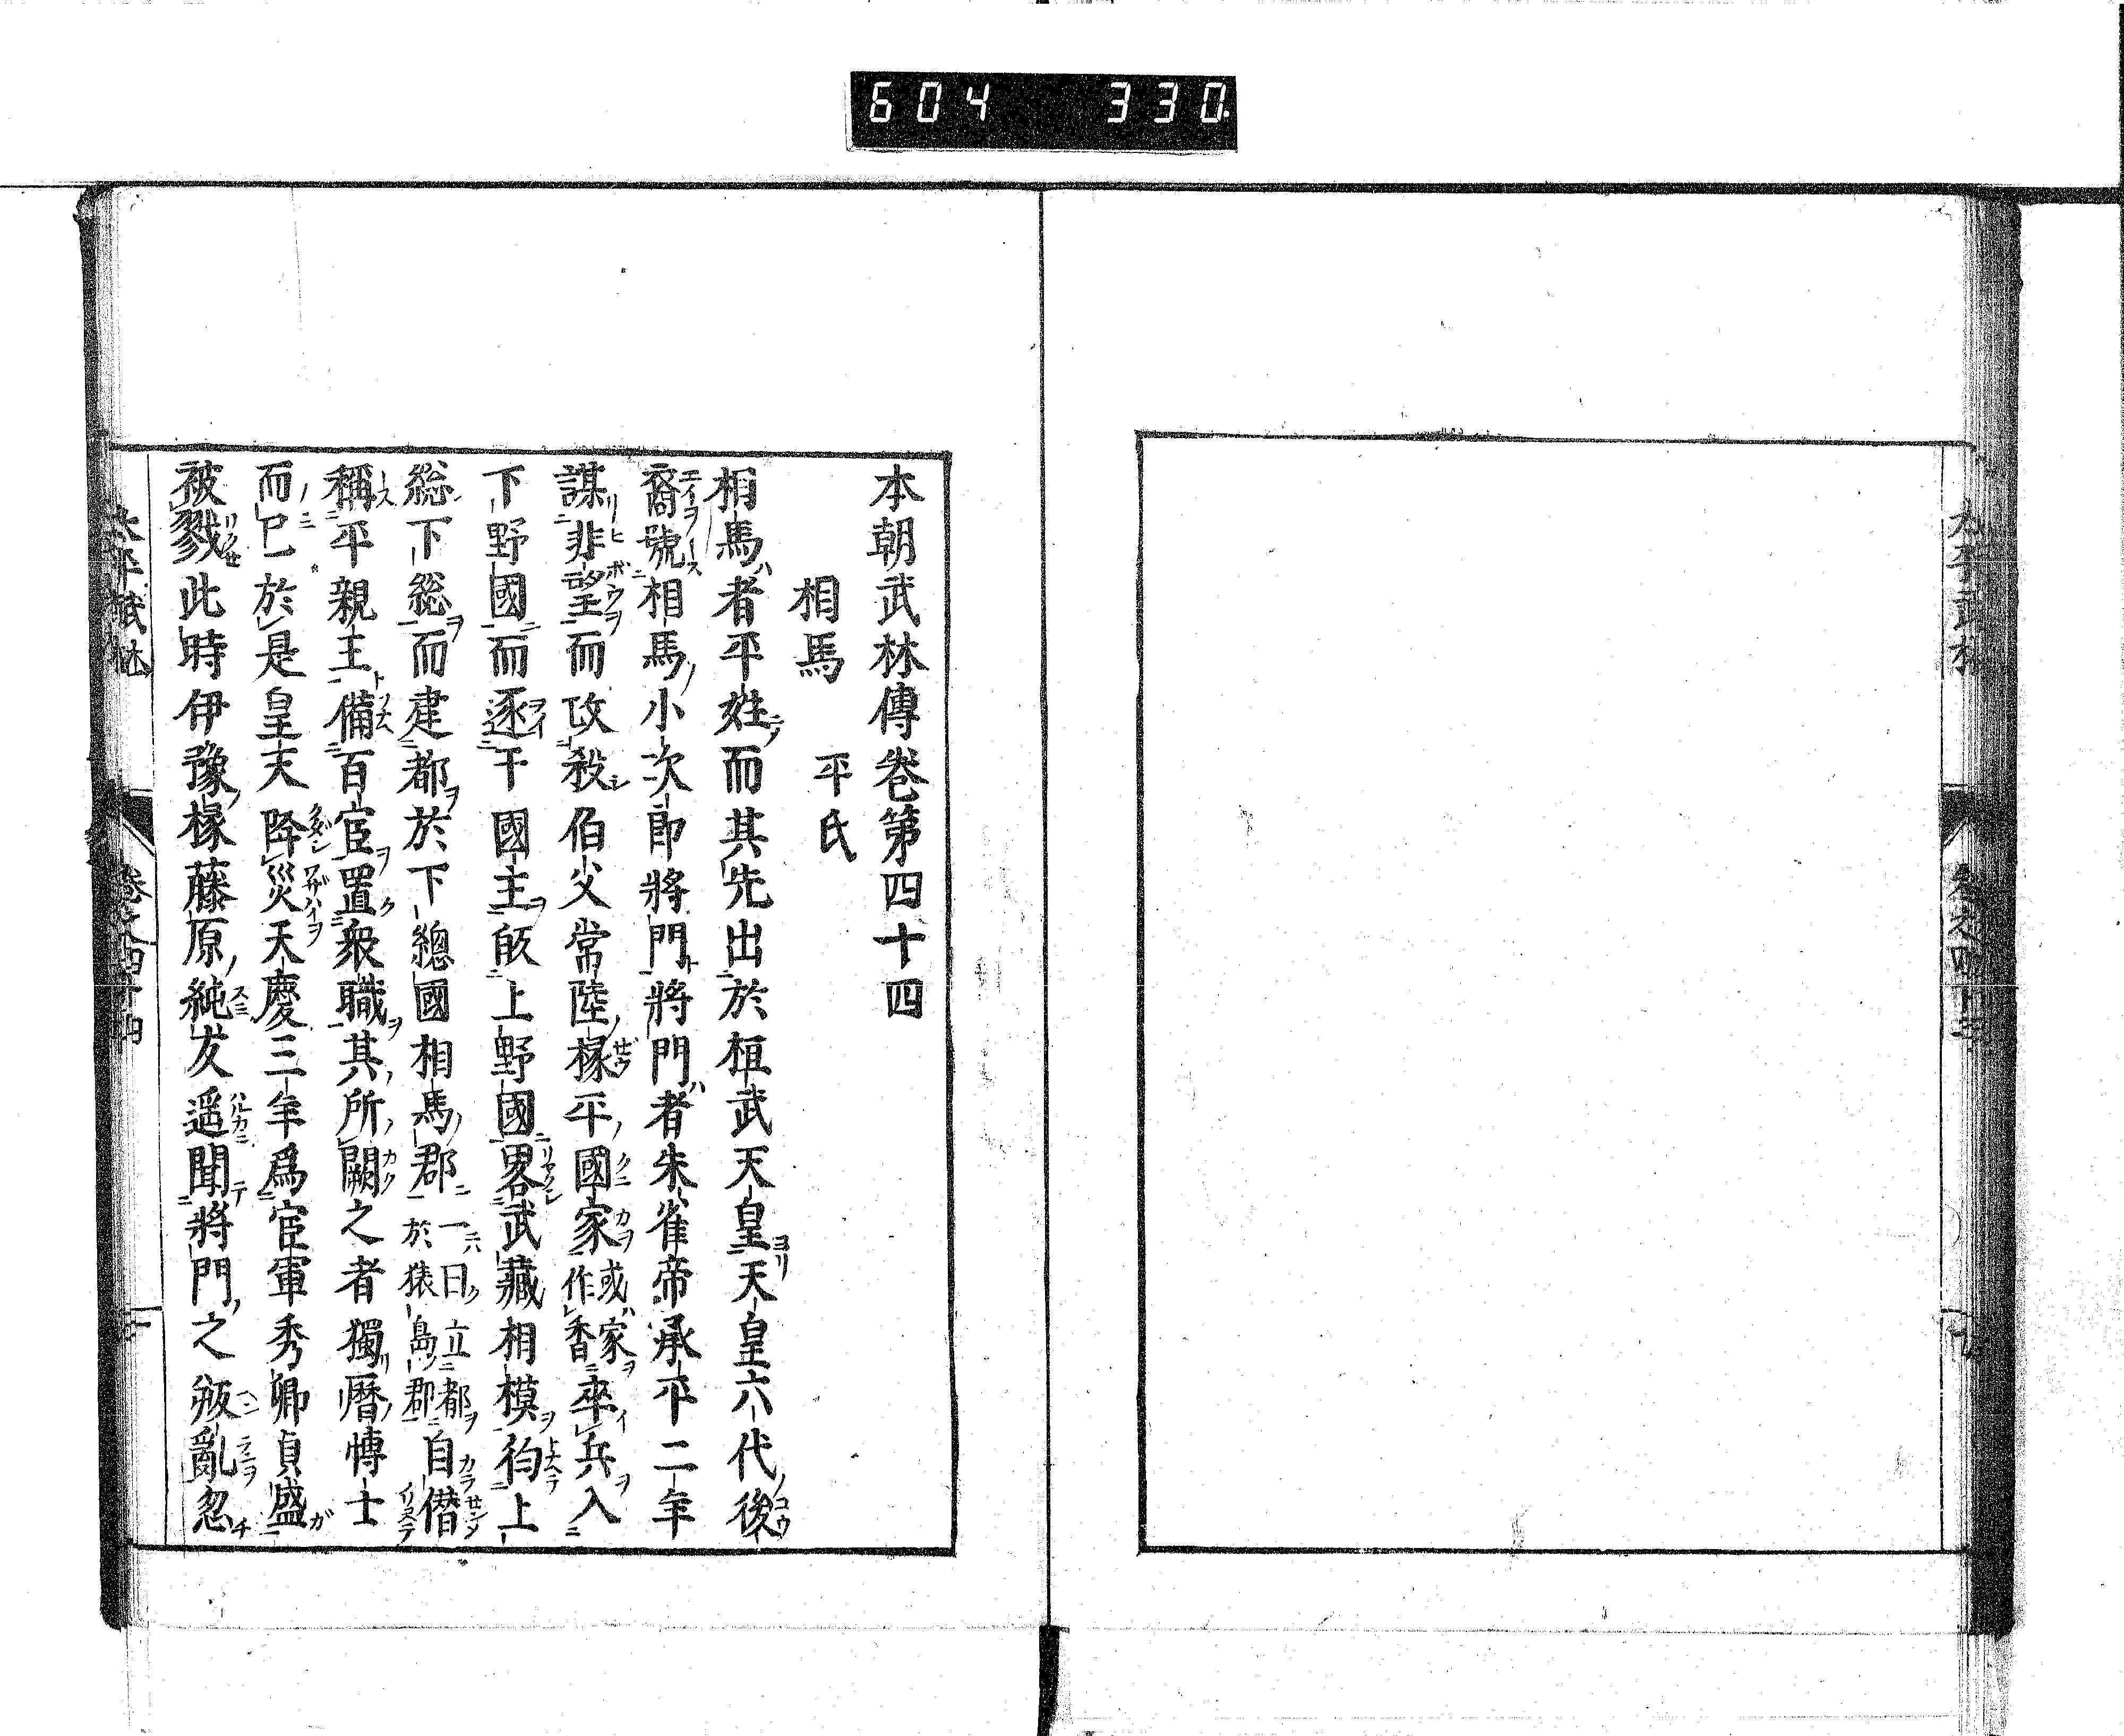 604 330.
本朝武林傳卷第四十四
相馬 平氏
相馬者平姓而其先出於桓武天皇天皇六代後
裔號相馬小次郎將門將門者朱雀帝承平二年
謀非望而攻殺伯父常陸椽平國家或家作香率兵入
下野國而逐下國主皈上野國畧武藏相模徇上
総下総而建都於下總國相馬郡一曰立都於猿島郡自僭
稱平親王備百官置衆職其所闕之者獨曆博士
而已於是皇天降災天慶三年爲官軍秀卿貞盛
被戮此時伊豫椽藤原純友遥聞將門之叛亂忽